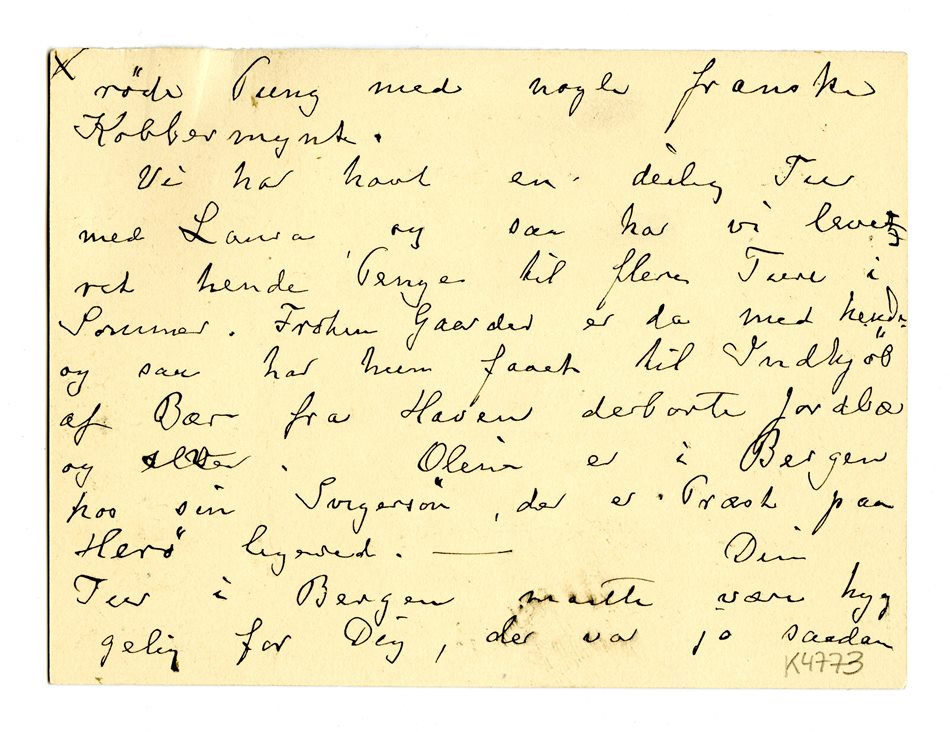 röde Pung med nogle franske
Kobbermynte.
Vi har havt en deilig Tur
med Laura og saa har vi levet
ret hende Penge til flere Ture i
Sommer. Fröken Gaarder er da med hende
og saa har hun faaet til Indkjöb
af Bær fra Haven derborte Jordbæ
og . Olena er i Bergen
hos sin Svigersön, der er Præst paa
Herö ligeved. —— Din
Tur i Bergen maatte være hyg
gelig for Dig, der var jo saadan
K4773